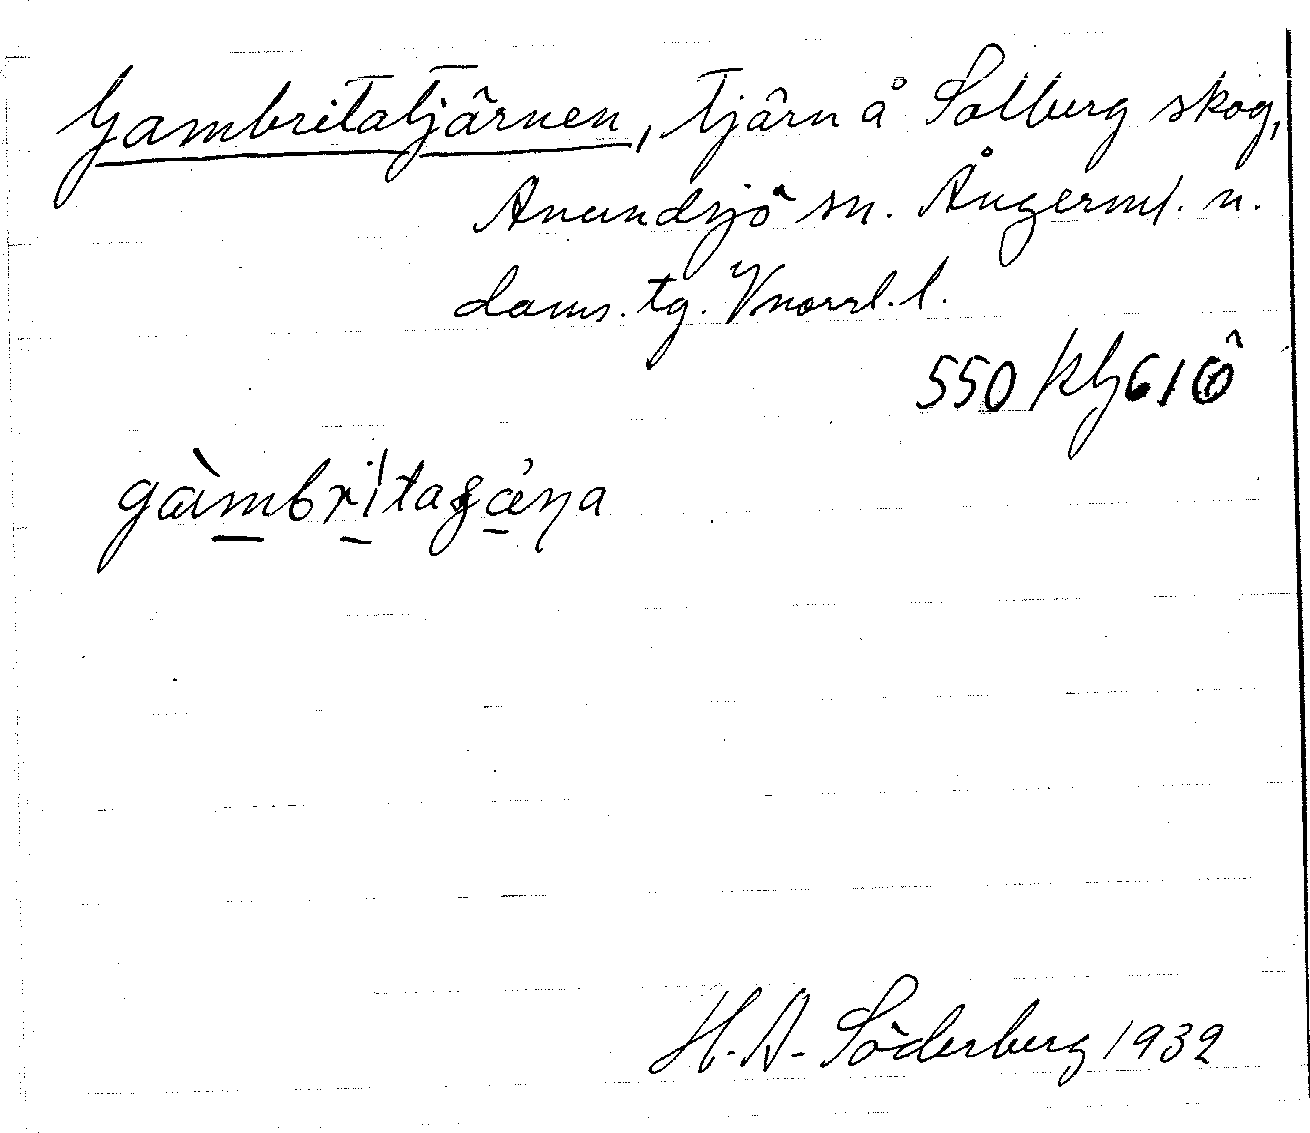 Gambritatjärnen, tjärn å Solberg skog,
Anundsjö sn. Ångerml. n.
doms. tg. Vnorrl. l.
550 Kh 61
H. A. Söderberg 1932